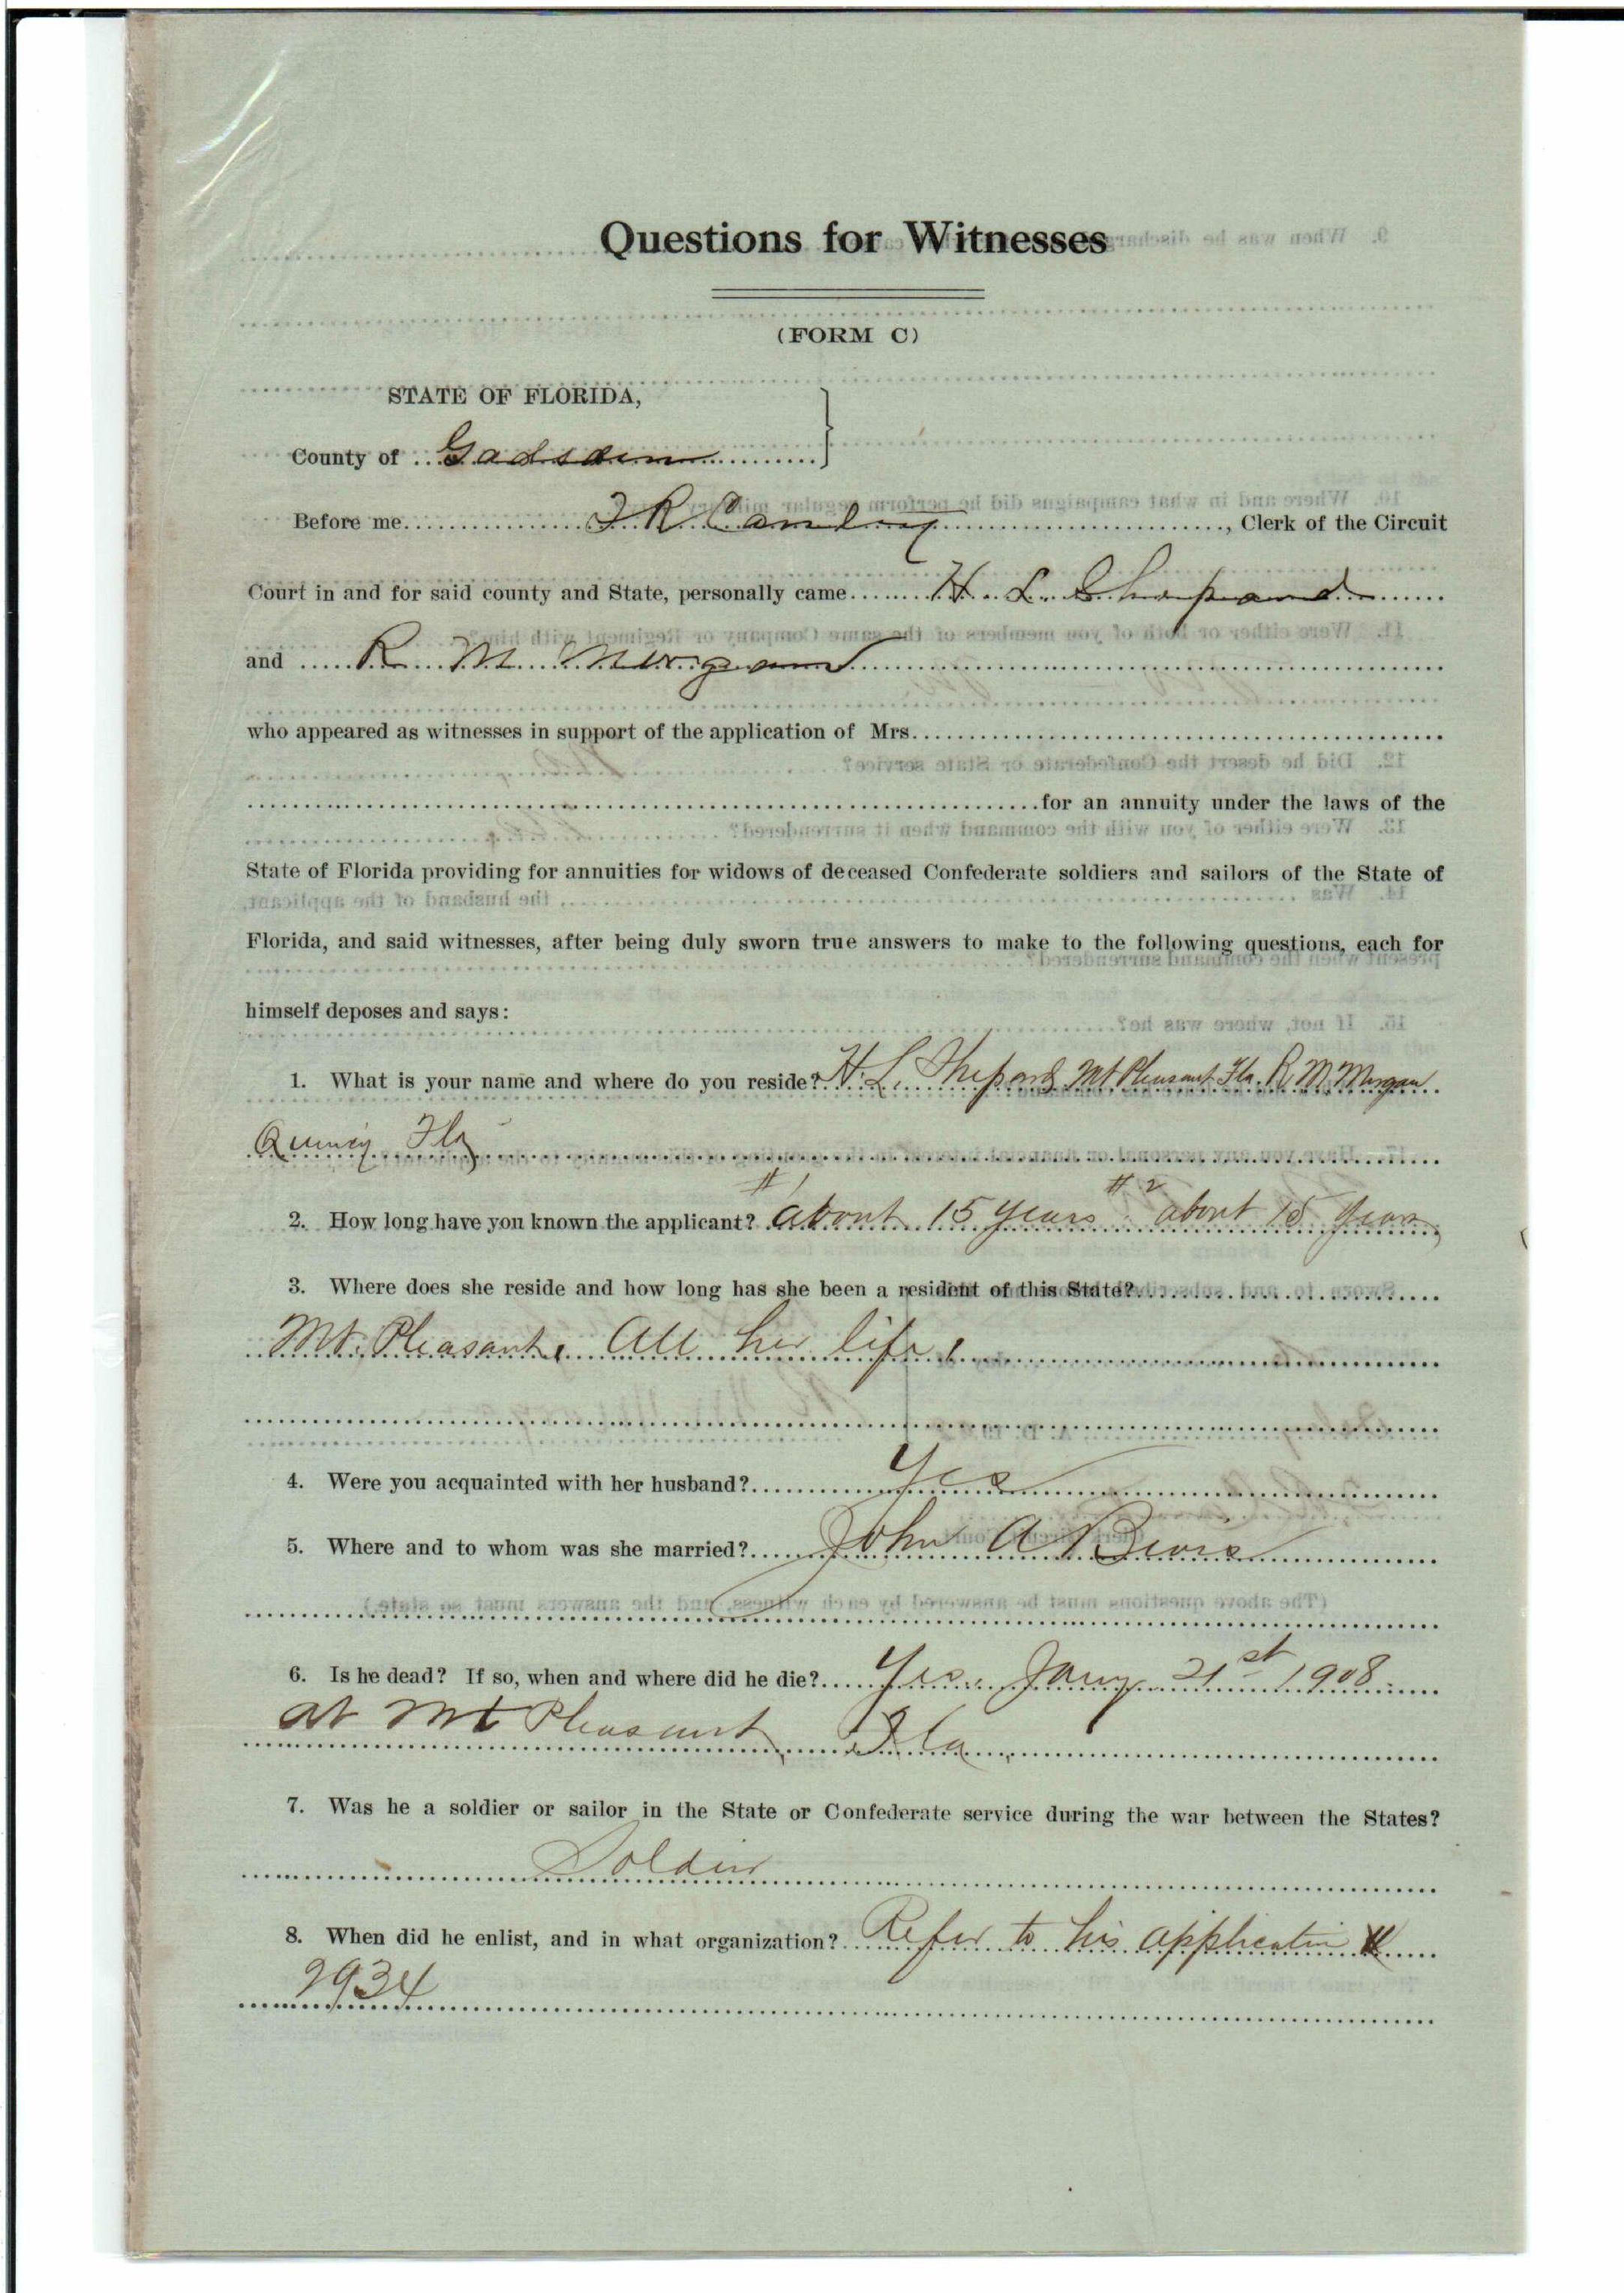 Questions for Witnesses
(FORM C)
STATE OF FLORIDA,
County of Gadsden
Before me, Clerk of the Circuit
Court in and for said county and State, personally came H. L. Shepard
and R M Morgan
who appeared as witnesses in support of the application of Mrs.
for an annuity under the laws of the
State of Florida providing for annuities for widows of deceased Confederate soldiers and sailors of the State of
Florida, and said witnesses, after being duly sworn true answers to make to the following questions, each for
himself deposes and says:
1. What is your name and where do you reside? H. L. Shepard Mt Pleasant Fla. R M Morgan
Quincy Fla
#1 #2
2. How long have you known the applicant? about 15 years about 15 years
3. Where does she reside and how long has she been a resident of this State?
Mt. Pleasant. All her life.
4. Were you acquainted with her husband? Yes
5. Where and to whom was she married? John A
6. Is he dead? If so, when and where did he die? Yes. Jany 21st 1908
at Mt Pleasant Fla.
7. Was he a soldier or sailor in the State or Confederate service during the war between the States?
Soldier
8. When did he enlist, and in what organization? Refer to his application
2934